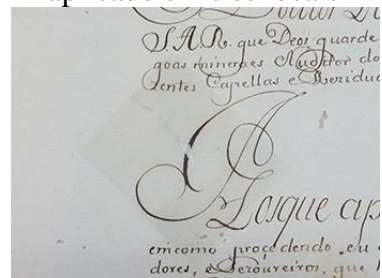 S.A.R. que Deos guarde
goas mineraes Auditor do
zentes Capellas e Rezidu
A
Los que ap
em como procedendo eu
dores, e Tezoureiros, que